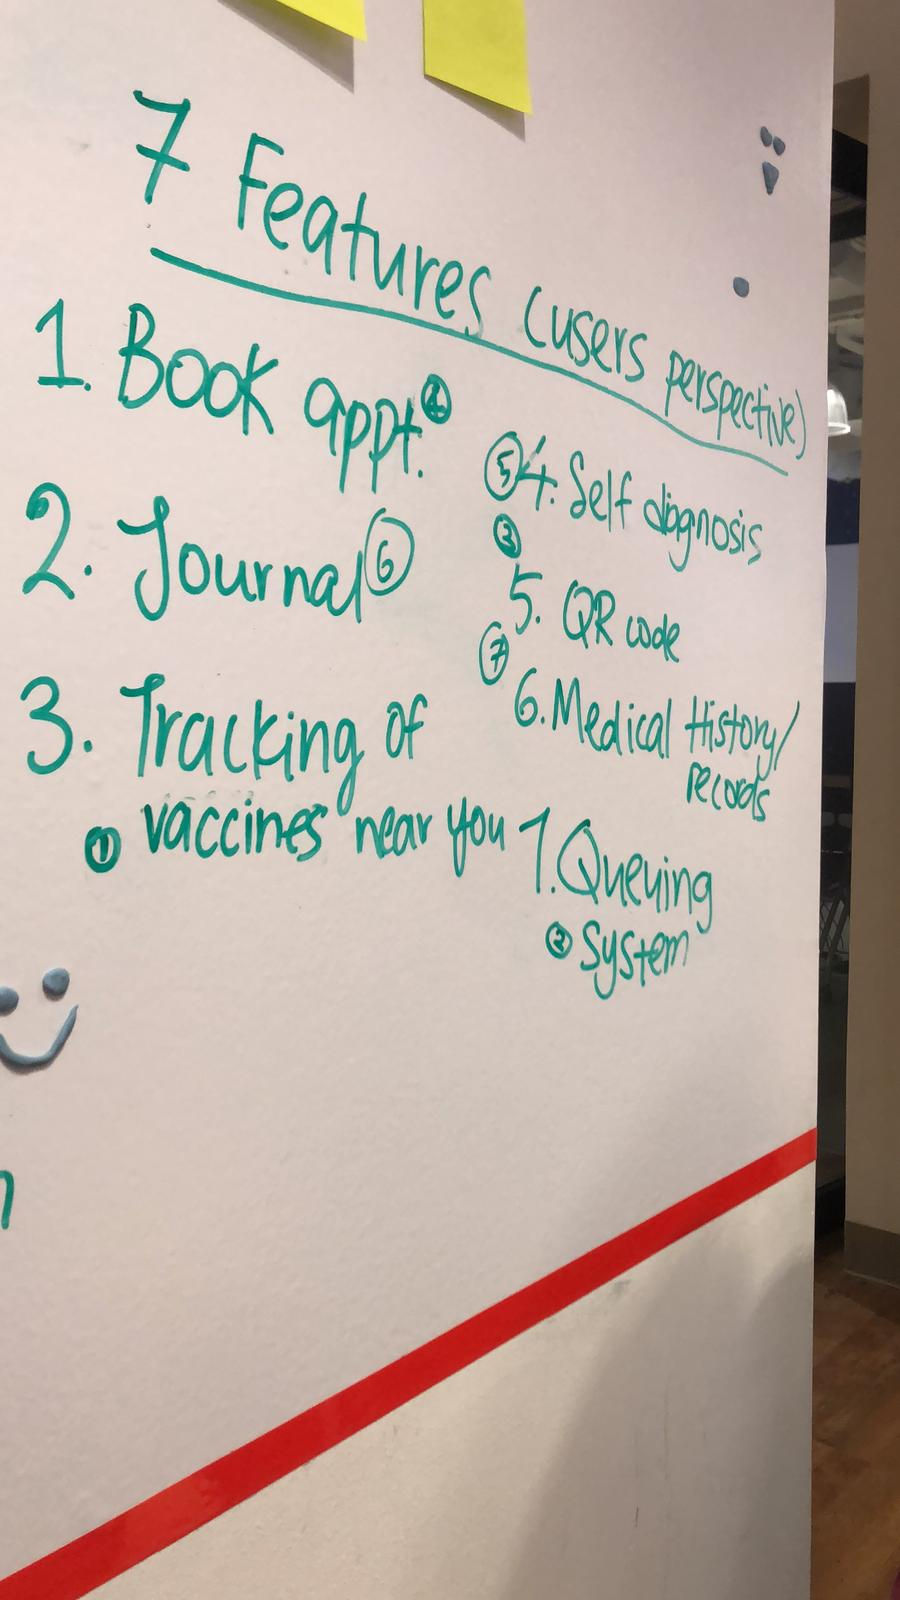 7 Features (users perspective)
1. Book appt.
2. Journal ⑥
3. Tracking of
① vaccines near you
⑤ 4. Self diagnosis
③
5. QR code
⑦
6. Medical History/
records
7. Queuing
② system